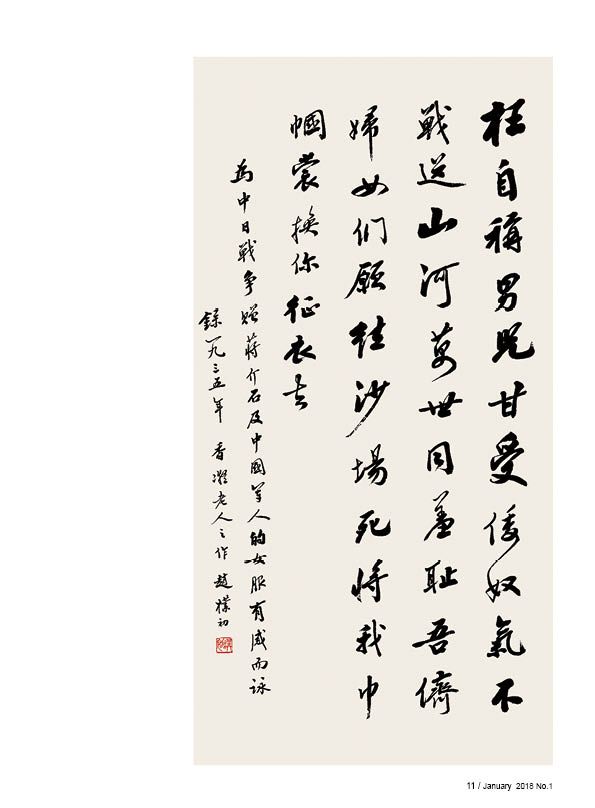 枉自稱男兒甘受倭奴氣不
戰送山河萬世同羞耻吾儕
婦女们願往沙場死將我巾
幗裳換你征衣去
為中日戰争贈蔣介石及中國軍人的女服有感而詠
錄一九三五年 香凝老人之作 趙樸初
11 / January 2018 No.1